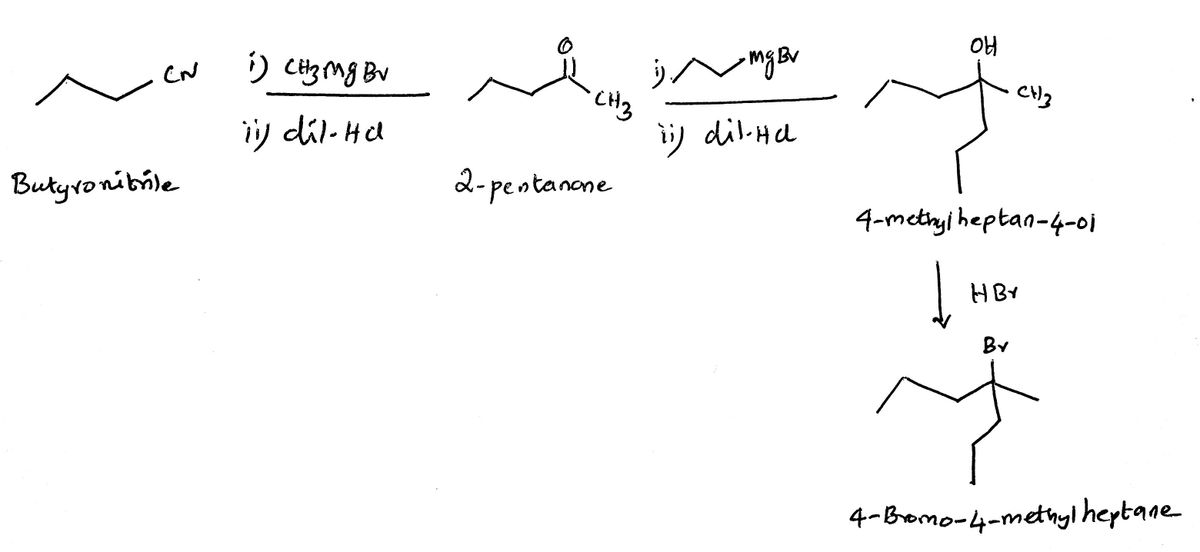 CN
i) CH3MgBr
ii) dil-HCl
Butyronitrile
O
CH3
2-pentanone
i) MgBr
ii) dil-HCl
OH
CH3
4-methylheptan-4-ol
HBr
Br
4-Bromo-4-methylheptane